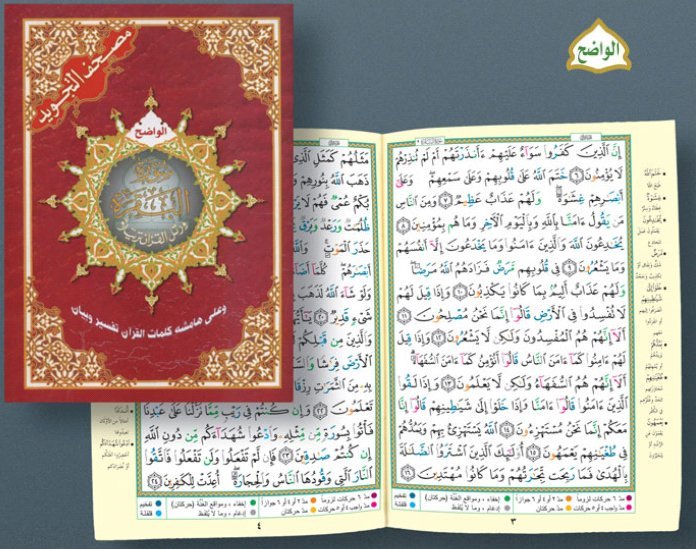 الواضح
مصحف التجويد
الواضح
سورة
البقرة
وعلى هامشه كلمات القرآن تفسير وبيان
إِنَّ ٱلَّذِينَ كَفَرُوا۟ سَوَآءٌ عَلَيْهِمْ ءَأَنذَرْتَهُمْ أَمْ لَمْ تُنذِرْهُمْ
لَا يُؤْمِنُونَ ٦ خَتَمَ ٱللَّهُ عَلَىٰ قُلُوبِهِمْ وَعَلَىٰ سَمْعِهِمْ وَعَلَىٰٓ
أَبْصَـٰرِهِمْ غِشَـٰوَةٌ وَلَهُمْ عَذَابٌ عَظِيمٌ ٧ وَمِنَ ٱلنَّاسِ
مَن يَقُولُ ءَامَنَّا بِٱللَّهِ وَبِٱلْيَوْمِ ٱلْـَٔاخِرِ وَمَا هُم بِمُؤْمِنِينَ ٨
يُخَـٰدِعُونَ ٱللَّهَ وَٱلَّذِينَ ءَامَنُوا۟ وَمَا يَخْدَعُونَ إِلَّآ أَنفُسَهُمْ
وَمَا يَشْعُرُونَ ٩ فِى قُلُوبِهِم مَّرَضٌ فَزَادَهُمُ ٱللَّهُ مَرَضًا
وَلَهُمْ عَذَابٌ أَلِيمٌۢ بِمَا كَانُوا۟ يَكْذِبُونَ ١٠ وَإِذَا قِيلَ لَهُمْ
لَا تُفْسِدُوا۟ فِى ٱلْأَرْضِ قَالُوٓا۟ إِنَّمَا نَحْنُ مُصْلِحُونَ ١١
أَلَآ إِنَّهُمْ هُمُ ٱلْمُفْسِدُونَ وَلَـٰكِن لَّا يَشْعُرُونَ ١٢ وَإِذَا قِيلَ
لَهُمْ ءَامِنُوا۟ كَمَآ ءَامَنَ ٱلنَّاسُ قَالُوٓا۟ أَنُؤْمِنُ كَمَآ ءَامَنَ ٱلسُّفَهَآءُ
أَلَآ إِنَّهُمْ هُمُ ٱلسُّفَهَآءُ وَلَـٰكِن لَّا يَعْلَمُونَ ١٣ وَإِذَا لَقُوا۟
ٱلَّذِينَ ءَامَنُوا۟ قَالُوٓا۟ ءَامَنَّا وَإِذَا خَلَوْا۟ إِلَىٰ شَيَـٰطِينِهِمْ قَالُوٓا۟ إِنَّا
مَعَكُمْ إِنَّمَا نَحْنُ مُسْتَهْزِءُونَ ١٤ ٱللَّهُ يَسْتَهْزِئُ بِهِمْ وَيَمُدُّهُمْ
فِى طُغْيَـٰنِهِمْ يَعْمَهُونَ ١٥ أُو۟لَـٰٓئِكَ ٱلَّذِينَ ٱشْتَرَوُا۟ ٱلضَّلَـٰلَةَ
بِٱلْهُدَىٰ فَمَا رَبِحَت تِّجَـٰرَتُهُمْ وَمَا كَانُوا۟ مُهْتَدِينَ ١٦
مدّ ٦ حركات لزوماً مدّ ٢ أو ٤ أو ٦ جوازاً إخفاء، ومواقع الغنّة (حركتان) تفخيم
مدّ واجب ٤ أو ٥ حركات مدّ حركتان إدغام، وما لا يُلفَظ قلقلة
٣
مَثَلُهُمْ كَمَثَلِ ٱلَّذِى
ذَهَبَ ٱللَّهُ بِنُورِهِمْ
بُكْمٌ عُمْىٌ فَهُمْ لَا
ظُلُمَـٰتٌ وَرَعْدٌ وَبَرْقٌ
حَذَرَ ٱلْمَوْتِ وَٱللَّهُ
أَبْصَـٰرَهُمْ كُلَّمَآ أَضَآءَ
وَلَوْ شَآءَ ٱللَّهُ لَذَهَبَ
شَىْءٍ قَدِيرٌ ٢٠ يَـٰٓأَيُّهَا
وَٱلَّذِينَ مِن قَبْلِكُمْ
ٱلْأَرْضَ فِرَٰشًا
بِهِۦ مِنَ ٱلثَّمَرَٰتِ رِزْقًا
تَعْلَمُونَ ٢٢ وَإِن كُنتُمْ فِى رَيْبٍ مِّمَّا نَزَّلْنَا عَلَىٰ عَبْدِنَا
فَأْتُوا۟ بِسُورَةٍ مِّن مِّثْلِهِۦ وَٱدْعُوا۟ شُهَدَآءَكُم مِّن دُونِ ٱللَّهِ
إِن كُنتُمْ صَـٰدِقِينَ ٢٣ فَإِن لَّمْ تَفْعَلُوا۟ وَلَن تَفْعَلُوا۟ فَٱتَّقُوا۟
ٱلنَّارَ ٱلَّتِى وَقُودُهَا ٱلنَّاسُ وَٱلْحِجَارَةُ أُعِدَّتْ لِلْكَـٰفِرِينَ ٢٤
مدّ ٦ حركات لزوماً مدّ ٢ أو ٤ أو ٦ جوازاً إخفاء، ومواقع الغنّة (حركتان) تفخيم
مدّ واجب ٤ أو ٥ حركات مدّ حركتان إدغام، وما لا يُلفَظ قلقلة
٤